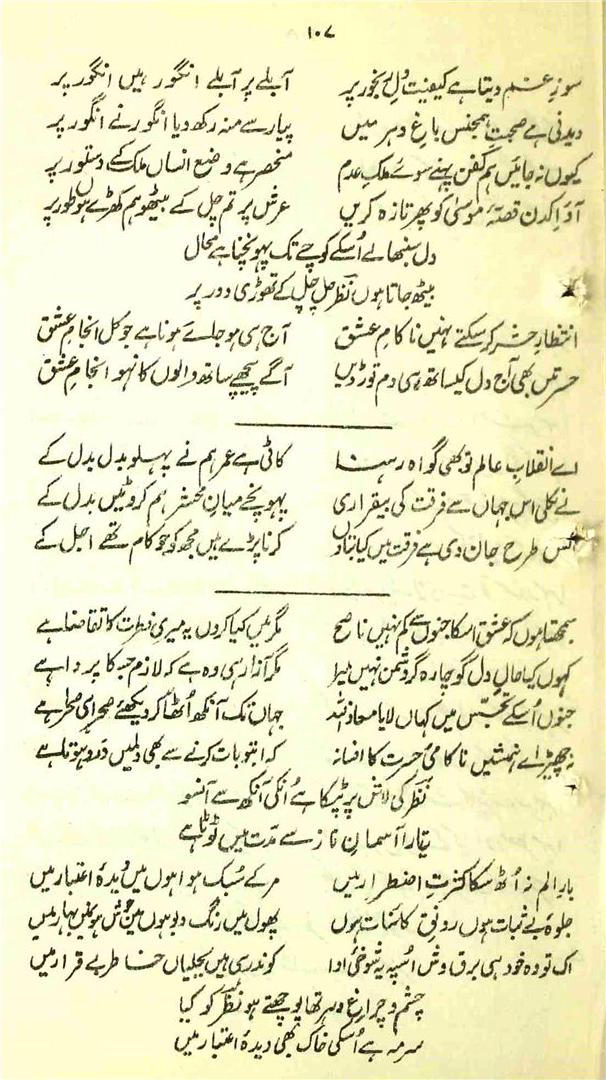 ۱۰۷
سوزِ غم دیتا ہے کیفیت دلِ رنجور پر آبلے پر آبلے انگور ہیں انگور پر
دیدنی ہے صحبتِ ہمجنس باغِ دہر میں پیار سے منہ رکھ دیا انگور نے انگور پر
کیوں نہ جائیں ہم کفن پہنے سوئے ملکِ عدم منحصر ہے وضعِ انساں ملک کے دستور پر
آؤ اکدن قصۂ موسیٰ کو پھر تازہ کریں عرش پر تم چل کے بیٹھو ہم کھڑے ہوں طور پر
دل سنبھالے اُسکے کوچے تک پہونچنا ہے محال
بیٹھ جاتا ہوں نظر چل چل کے تھوڑی دور پر
انتظارِ حشر کر سکتے نہیں ناکامِ عشق آج ہی ہو جلسے ہونا ہے جو کل انجامِ عشق
حسرتیں بھی آج دل کیساتھ ہی دم توڑ دیں آگے پیچھے ساتھ والوں کا نہو انجامِ عشق
اے انقلابِ عالم تو بھی گواہ رہنا کاٹی ہے عمر ہم نے پہلو بدل بدل کے
نے نکلی اس جہاں سے فرقت کی بیقراری پہونچے میانِ محشر ہم کروٹیں بدل کے
کس طرح جان دی ہے فرقت میں کیا بتاؤں کرنا پڑے ہیں مجھ کو جو کام تھے اجل کے
سمجھتا ہوں کہ عشق اسکا جنوں سے کم نہیں ناصح مگر میں کیا کروں یہ میری فطرت کا تقاضا ہے
کہوں کیا حالِ دل گو چارہ گر دشمن نہیں میرا مگر آزار ہی وہ ہے کہ لازم جسکا پردا ہے
جنوں اُسکے تجسّس میں کہاں لایا معاذ اللہ جہاں تک آنکھ اُٹھا کر دیکھئے صحرا ہی صحرا ہے
نہ چھیڑ اے ہمنشیں ناکامیٔ حسرت کا افسانہ کہ ابتو بات کرنے سے بھی دلمیں درد ہوتا ہے
نظر کی لاش پر ٹپکا ہے اُنکی آنکھ سے آنسو
یہ تارا آسمانِ ناز سے مدّت میں ٹوٹا ہے
بارِ الم نہ اُٹھ سکا کثرتِ اضطرار میں مر کے سُبک ہوا ہوں میں دیدۂ اعتبار میں
جلوۂ بے ثبات ہوں رونقِ کائنات ہوں پھول میں رنگ و بو ہوں میں جوش ہوں میں بہار میں
اک تو وہ خود ہی برق وش اسپہ یہ شوخیٔ ادا کوندر ہی ہیں بجلیاں خاطرِ بے قرار میں
چشم و چراغِ دہر تھا پوچھتے ہو نظر کو کیا
سرمہ ہے اُسکی خاک بھی دیدۂ اعتبار میں